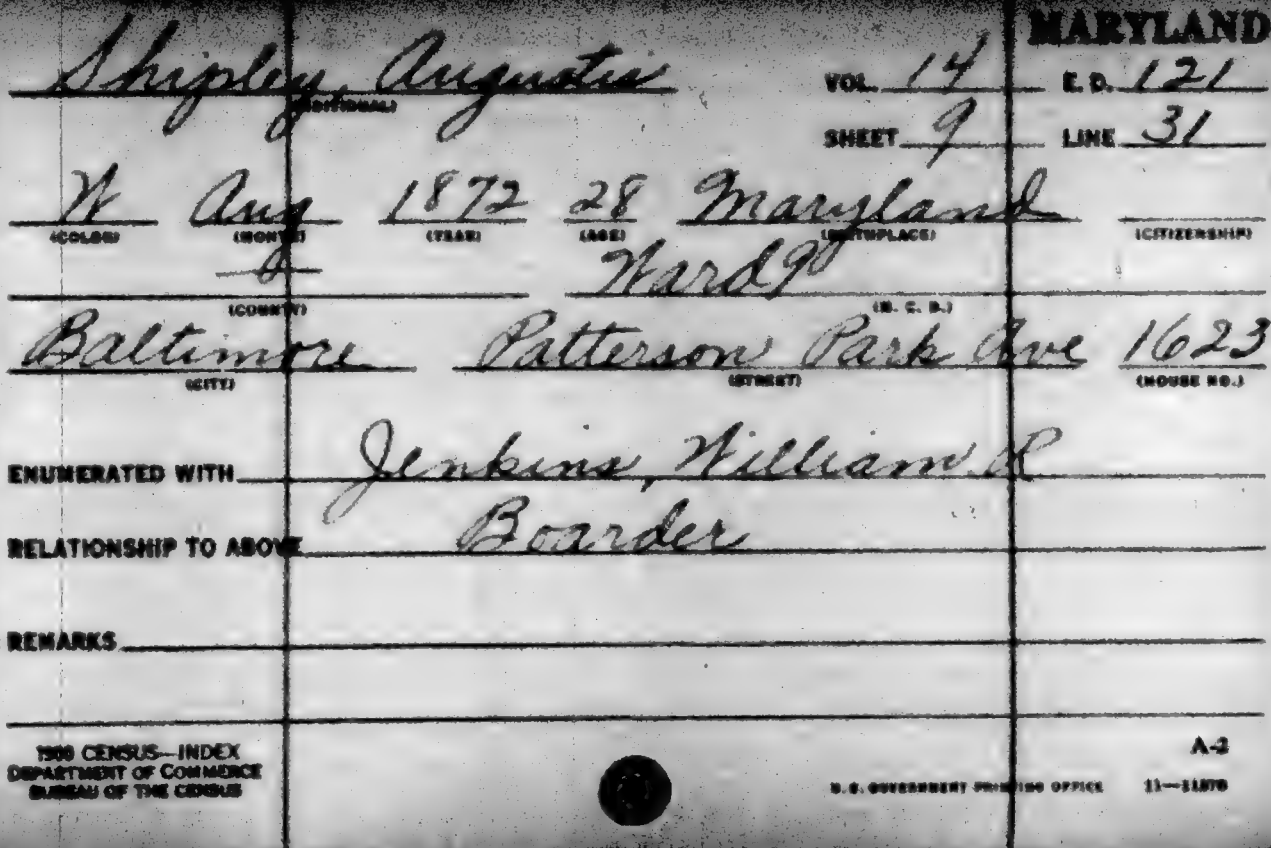 MARYLAND
Shipley, Augustis VOL. 14 E. D. 121
(INDIVIDUAL)
SHEET 9 LINE 31
W Aug 1872 28 Maryland
(COLOR) (MONTH) (YEAR) (AGE) (BIRTHPLACE) (CITIZENSHIP)
Ward 9
(COUNTY) (M. C. D.)
Baltimore Patterson Park Ave 1623
(CITY) (STREET) (HOUSE NO.)
ENUMERATED WITH Jenkins, William R
RELATIONSHIP TO ABOVE Boarder
REMARKS
1900 CENSUS—INDEX
DEPARTMENT OF COMMERCE
BUREAU OF THE CENSUS
A-2
U.S. GOVERNMENT PRINTING OFFICE